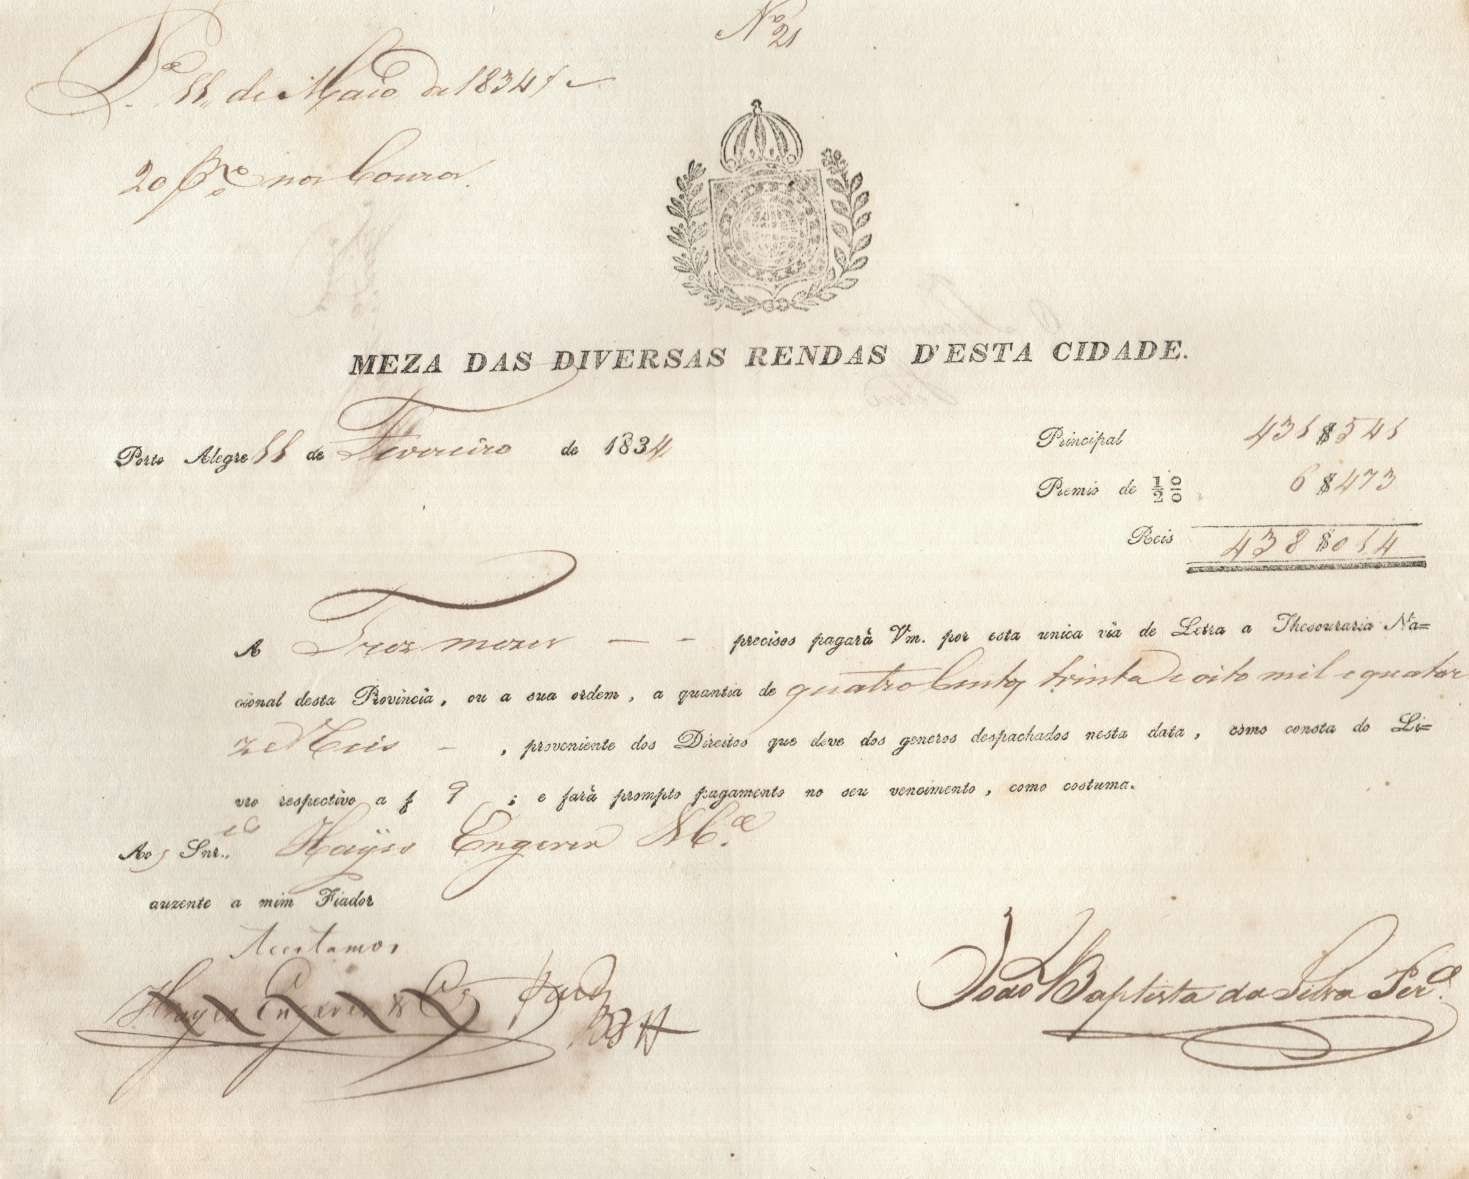 Nº 21
11 de Maio de 1834
20 p.% nos Couros.
MEZA DAS DIVERSAS RENDAS D'ESTA CIDADE.
Porto Alegre 11 de Fevereiro de 1834
Principal 431$541
Premio de ½ % 6$473
Reis 438$014
A Trez mezes — — precisos pagarà Vm. por esta unica via de Letra a Thesouraria Na=
cional desta Provincia, ou a sua ordem, a quantia de quatro Centos trinta e oito mil e quator
ze Reis — , proveniente dos Direitos que deve dos generos despachados nesta data, como consta do Li=
vro respectivo a f 9 ; e farà prompto pagamento no seu vencimento, como costuma.
Aos Snr.es Hayes Engerer & C.ª
auzente a mim Fiador
Aceitamos
Hayes Engerer & C.ª
João Baptista da Silva Per.ª